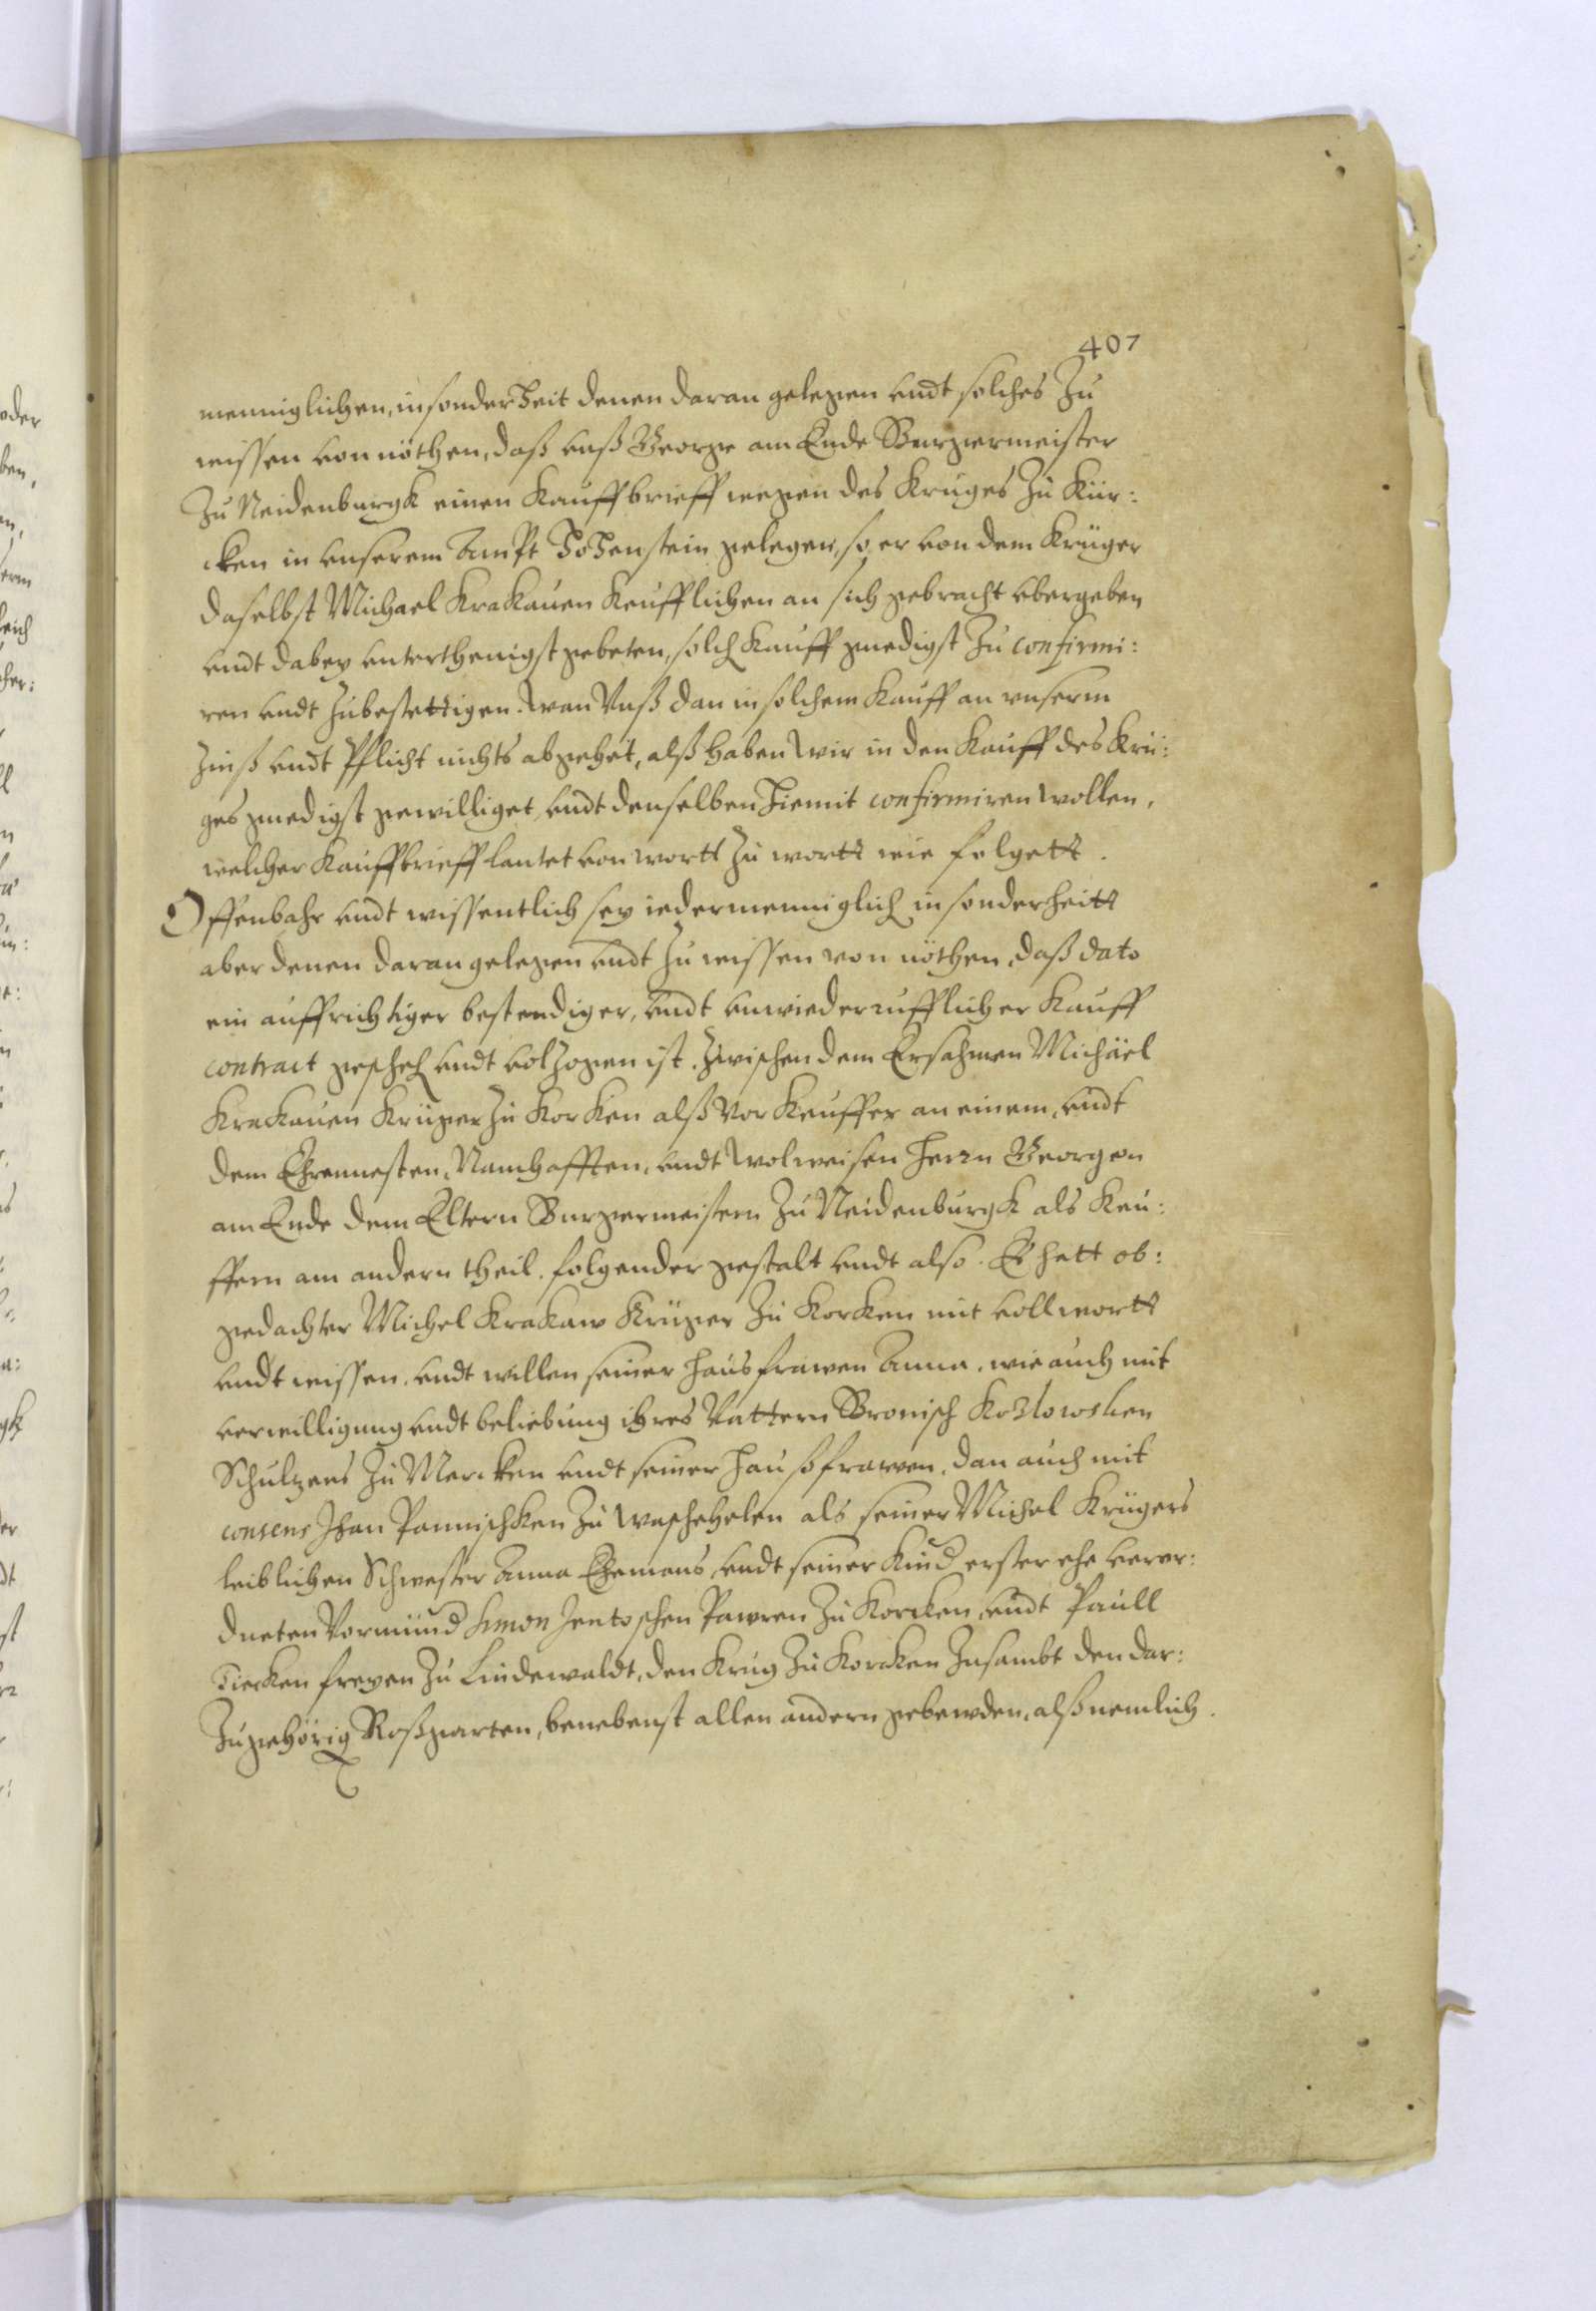 407
menniglichen, insonderheit denen daran gelegen undt solches Zu
wissen von nöthen, daß unß George am Ende Burgermeister
Zu Neidenburgk einen Kauffbrieff wegen des Kruges Zu Kür:
cken in unserem Ampt Hohenstein gelegen, so er von dem Krüger
daselbst Michael Krakauen Keufflichen an sich gebracht ubergeben
undt dabey unterthenigst gebeten, solch Kauff gnedigst Zu confirmi:
ren undt Zubestettigen. Wan Unß dan in solchem Kauff an unserm
Zinß undt Pflicht nichts abgehet, alß haben Wir in den Kauff des Krü:
ges gnedigst gewilliget, undt denselben hiemit confirmiren Wollen,
welcher Kauffbrieff lautet von wortt Zu wortt wie folgett.
Offenbahr undt wissentlich sey iedermenniglich insonderheitt
aber denen daran gelegen undt Zu wissen von nöthen, daß dato
ein auffrichtiger bestendiger, undt unwiederrufflicher Kauff
contract gescheh undt volzogen ist. Zwischen dem Ersahmen Michäel
Krakauen Krüger Zu Korken alß Vorkeuffer an einem, undt
dem Ehrnuesten, Namhafften, undt Wolweisen Herrn Georgen
am Ende dem Eltern Burgermeistern Zu Neidenburgk als Keu:
ffern am andern theil. folgender gestalt undt also. Es hatt ob:
gedachter Michel Krakaw Krüger Zu Korken mit vollwortt
undt wissen, undt willen seiner Hausfrawen Anna, wie auch mit
verwilligung undt beliebung ihres Vattern Bronisch Kozlowsken
Schulzens Zu Mercken undt seiner Haußfrawen, dan auch mit
consens Jhan Pannischken Zu Waschehelen als seiner Michel Krügers
leiblichen Schwester Anna Ehemans, undt seiner Kind erster ehe veror:
dneten Vormünd Simon Jentoschen Pawren Zu Korcken, undt Paull
Tiecken freyen Zu Lindewaldt, den Krug Zu Korcken Zusambt den dar:
Zugehörig Roßgarten, benebenst allen andern gebewden, alß nemlich.